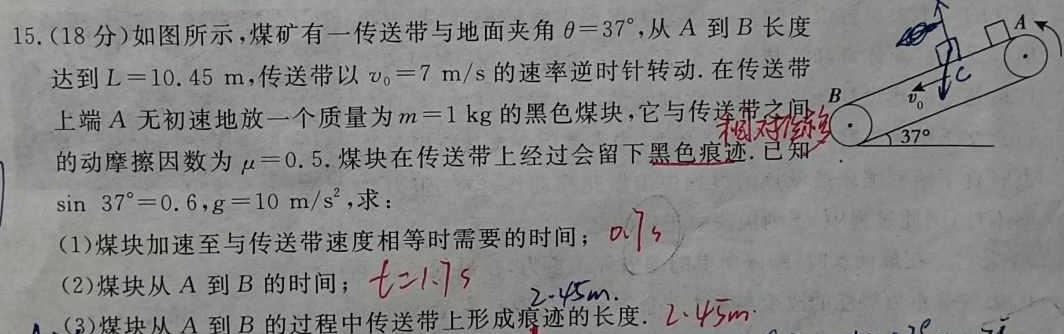 15.(18分)如图所示,煤矿有一传送带与地面夹角θ=37°,从A到B长度
达到L=10.45 m,传送带以v₀=7 m/s的速率逆时针转动.在传送带
上端A无初速地放一个质量为m=1 kg的黑色煤块,它与传送带之间
相对位移
的动摩擦因数为μ=0.5.煤块在传送带上经过会留下黑色痕迹.已知
sin 37°=0.6,g=10 m/s²,求:
(1)煤块加速至与传送带速度相等时需要的时间; 0.7s
(2)煤块从A到B的时间; t=1.7s
2.45m.
(3)煤块从A到B的过程中传送带上形成痕迹的长度. 2.45m.
A
C
v₀
B
37°